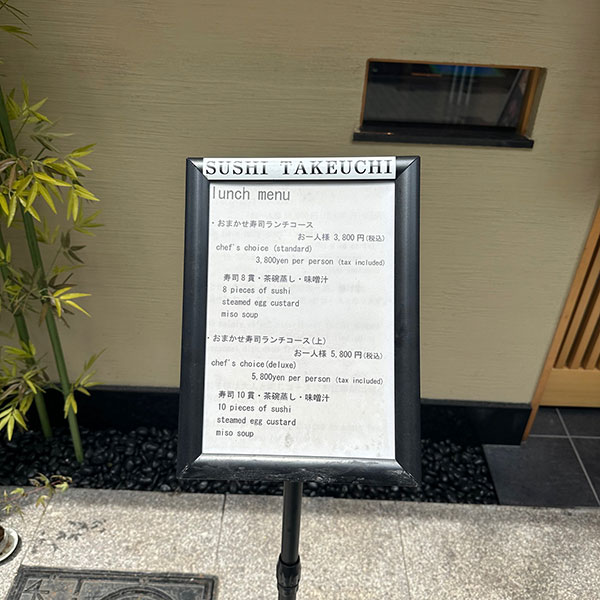 SUSHI TAKEUCHI
lunch menu
・おまかせ寿司ランチコース
お一人様 3,800円(税込)
chef's choice (standard)
3,800yen per person (tax included)
寿司8貫・茶碗蒸し・味噌汁
8 pieces of sushi
steamed egg custard
miso soup
・おまかせ寿司ランチコース(上)
お一人様 5,800円(税込)
chef's choice(deluxe)
5,800yen per person (tax included)
寿司10貫・茶碗蒸し・味噌汁
10 pieces of sushi
steamed egg custard
miso soup